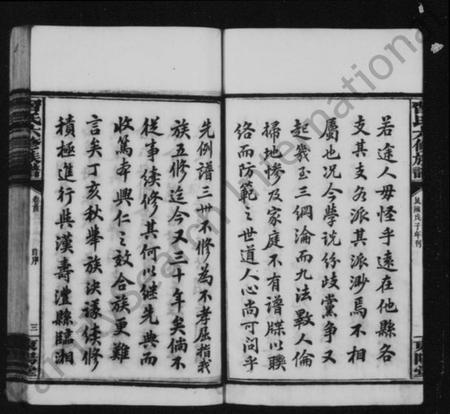 若途人毋怪乎遠在他縣各
支其支各派其派渺焉不相
屬也况今學說紛歧黨爭又
起幾至三綱淪而九法斁人倫
掃地慘及家庭不有譜牒以聯
絡而防範之世道人心尚可問乎
先例譜三世不修為不孝屈指我
族五修迄今又三十年矣倘不
從事續修其何以繼先典而
收篤本興仁之效合族更難
言矣丁亥秋舉族決議續修
積極進行與漢壽澧縣臨湘
氏六修族譜
卷首
自序
三
民國戊子年刊
www.familysearch International